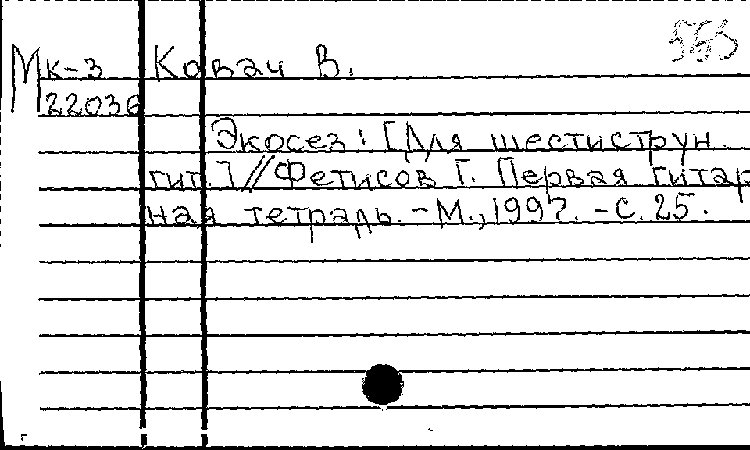 Мк-3 Ковач В.
22036
Экосез: [Для шестиструн.
гит.]//Фетисов Г. Первая гитар
ная тетрадь. - М., 1997. - С. 25.